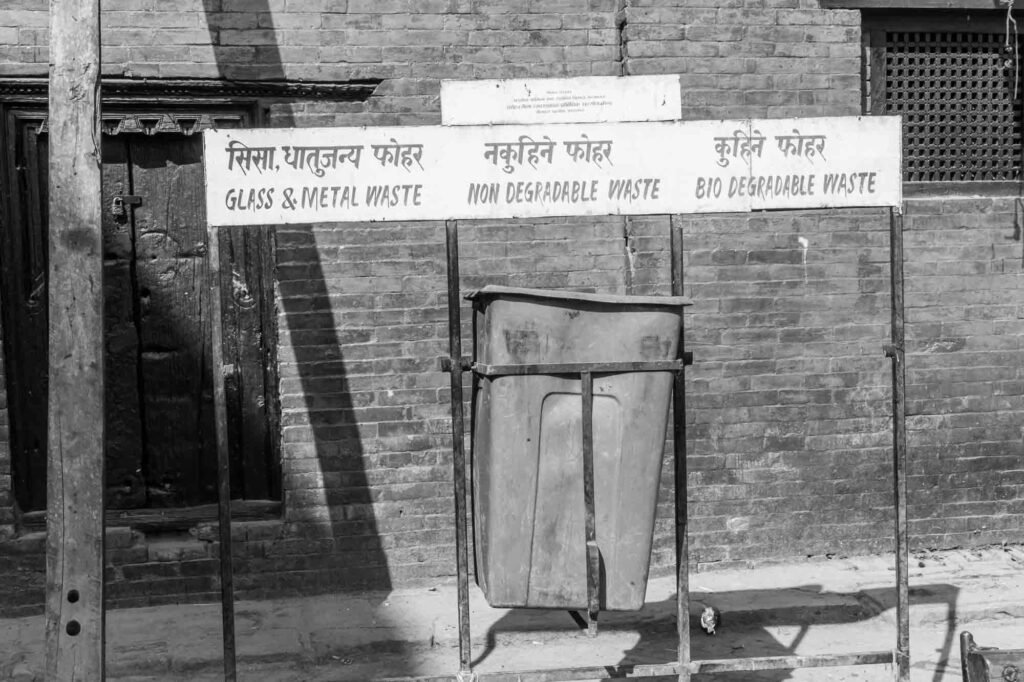 सिसा, धातुजन्य फोहर
GLASS & METAL WASTE
नकुहिने फोहर
NON DEGRADABLE WASTE
कुहिने फोहर
BIO DEGRADABLE WASTE